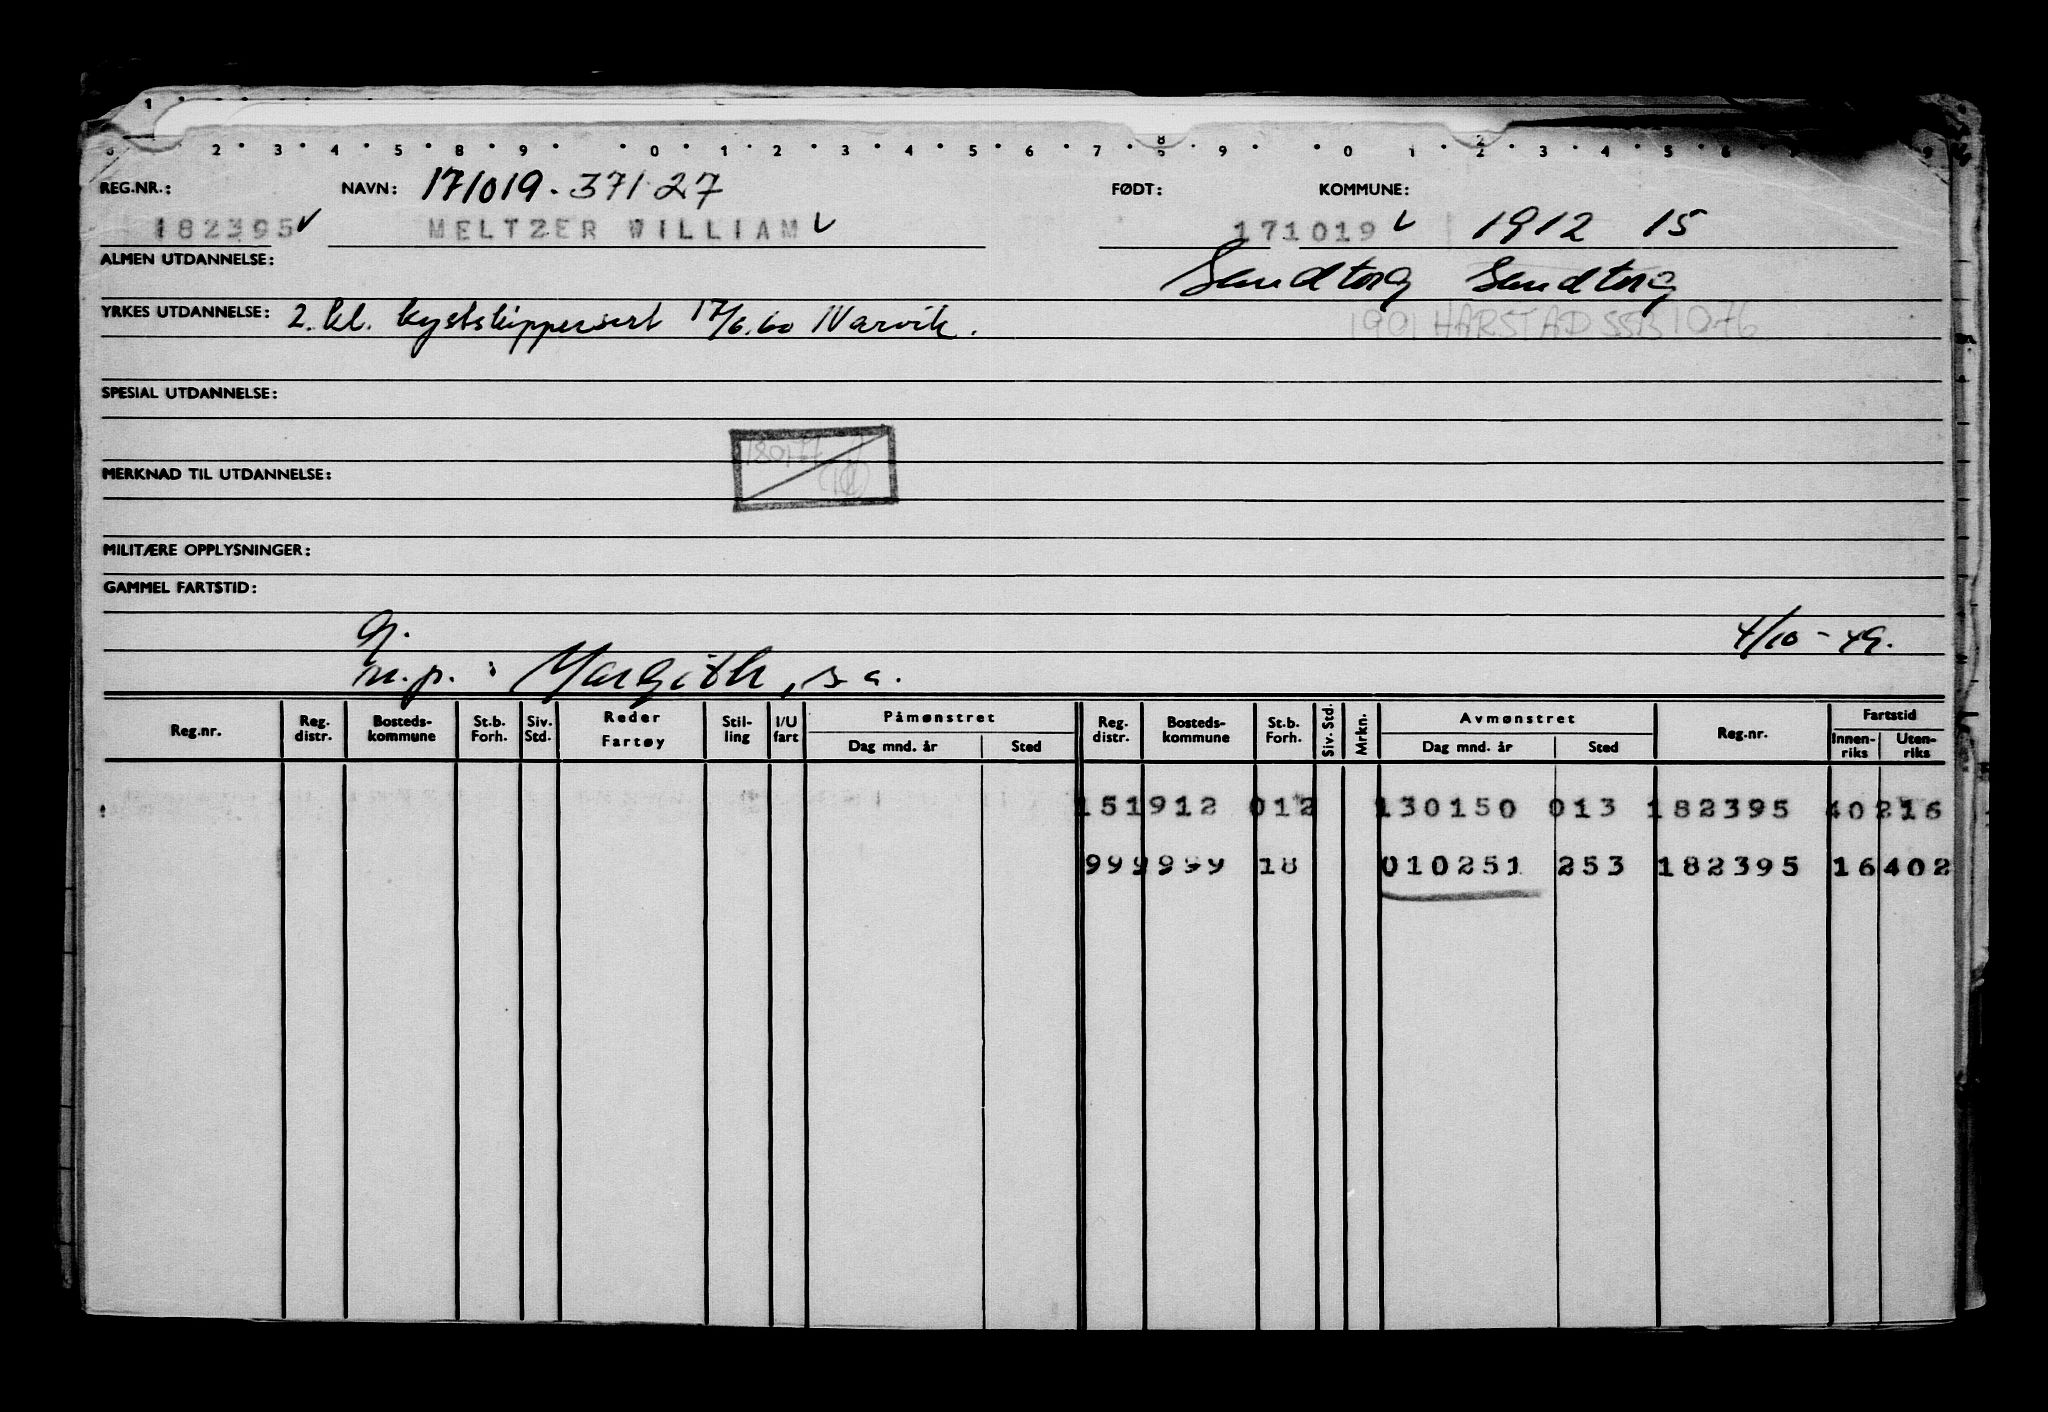 REG.NR.: NAVN: 171019. 371 27 FØDT: KOMMUNE:
182395 MELTZER WILLIAM 171019 1912 15
ALMEN UTDANNELSE: Sandtorg Sandtorg
YRKES UTDANNELSE: 2. kl. kystskippersert 17/6.60 Narvik. 1901 HARSTAD SSB 1076
SPESIAL UTDANNELSE:
180177
MERKNAD TIL UTDANNELSE:
MILITÆRE OPPLYSNINGER:
GAMMEL FARTSTID:
g. 4/10-49.
m.p.: Margith, s a.
Reg.nr. Reg. distr. Bosteds- kommune St.b. Forh. Siv. Std. Reder Fartøy Stil- ling I/U fart Påmønstret Dag mnd. år Sted Reg. distr. Bosteds- kommune St.b. Forh. Siv. Std. Mrkn. Avmønstret Dag mnd. år Sted Reg.nr. Fartstid Innen- riks Uten- riks
151912 012 130150 013 182395 40216
999999 18 010251 253 182395 16402